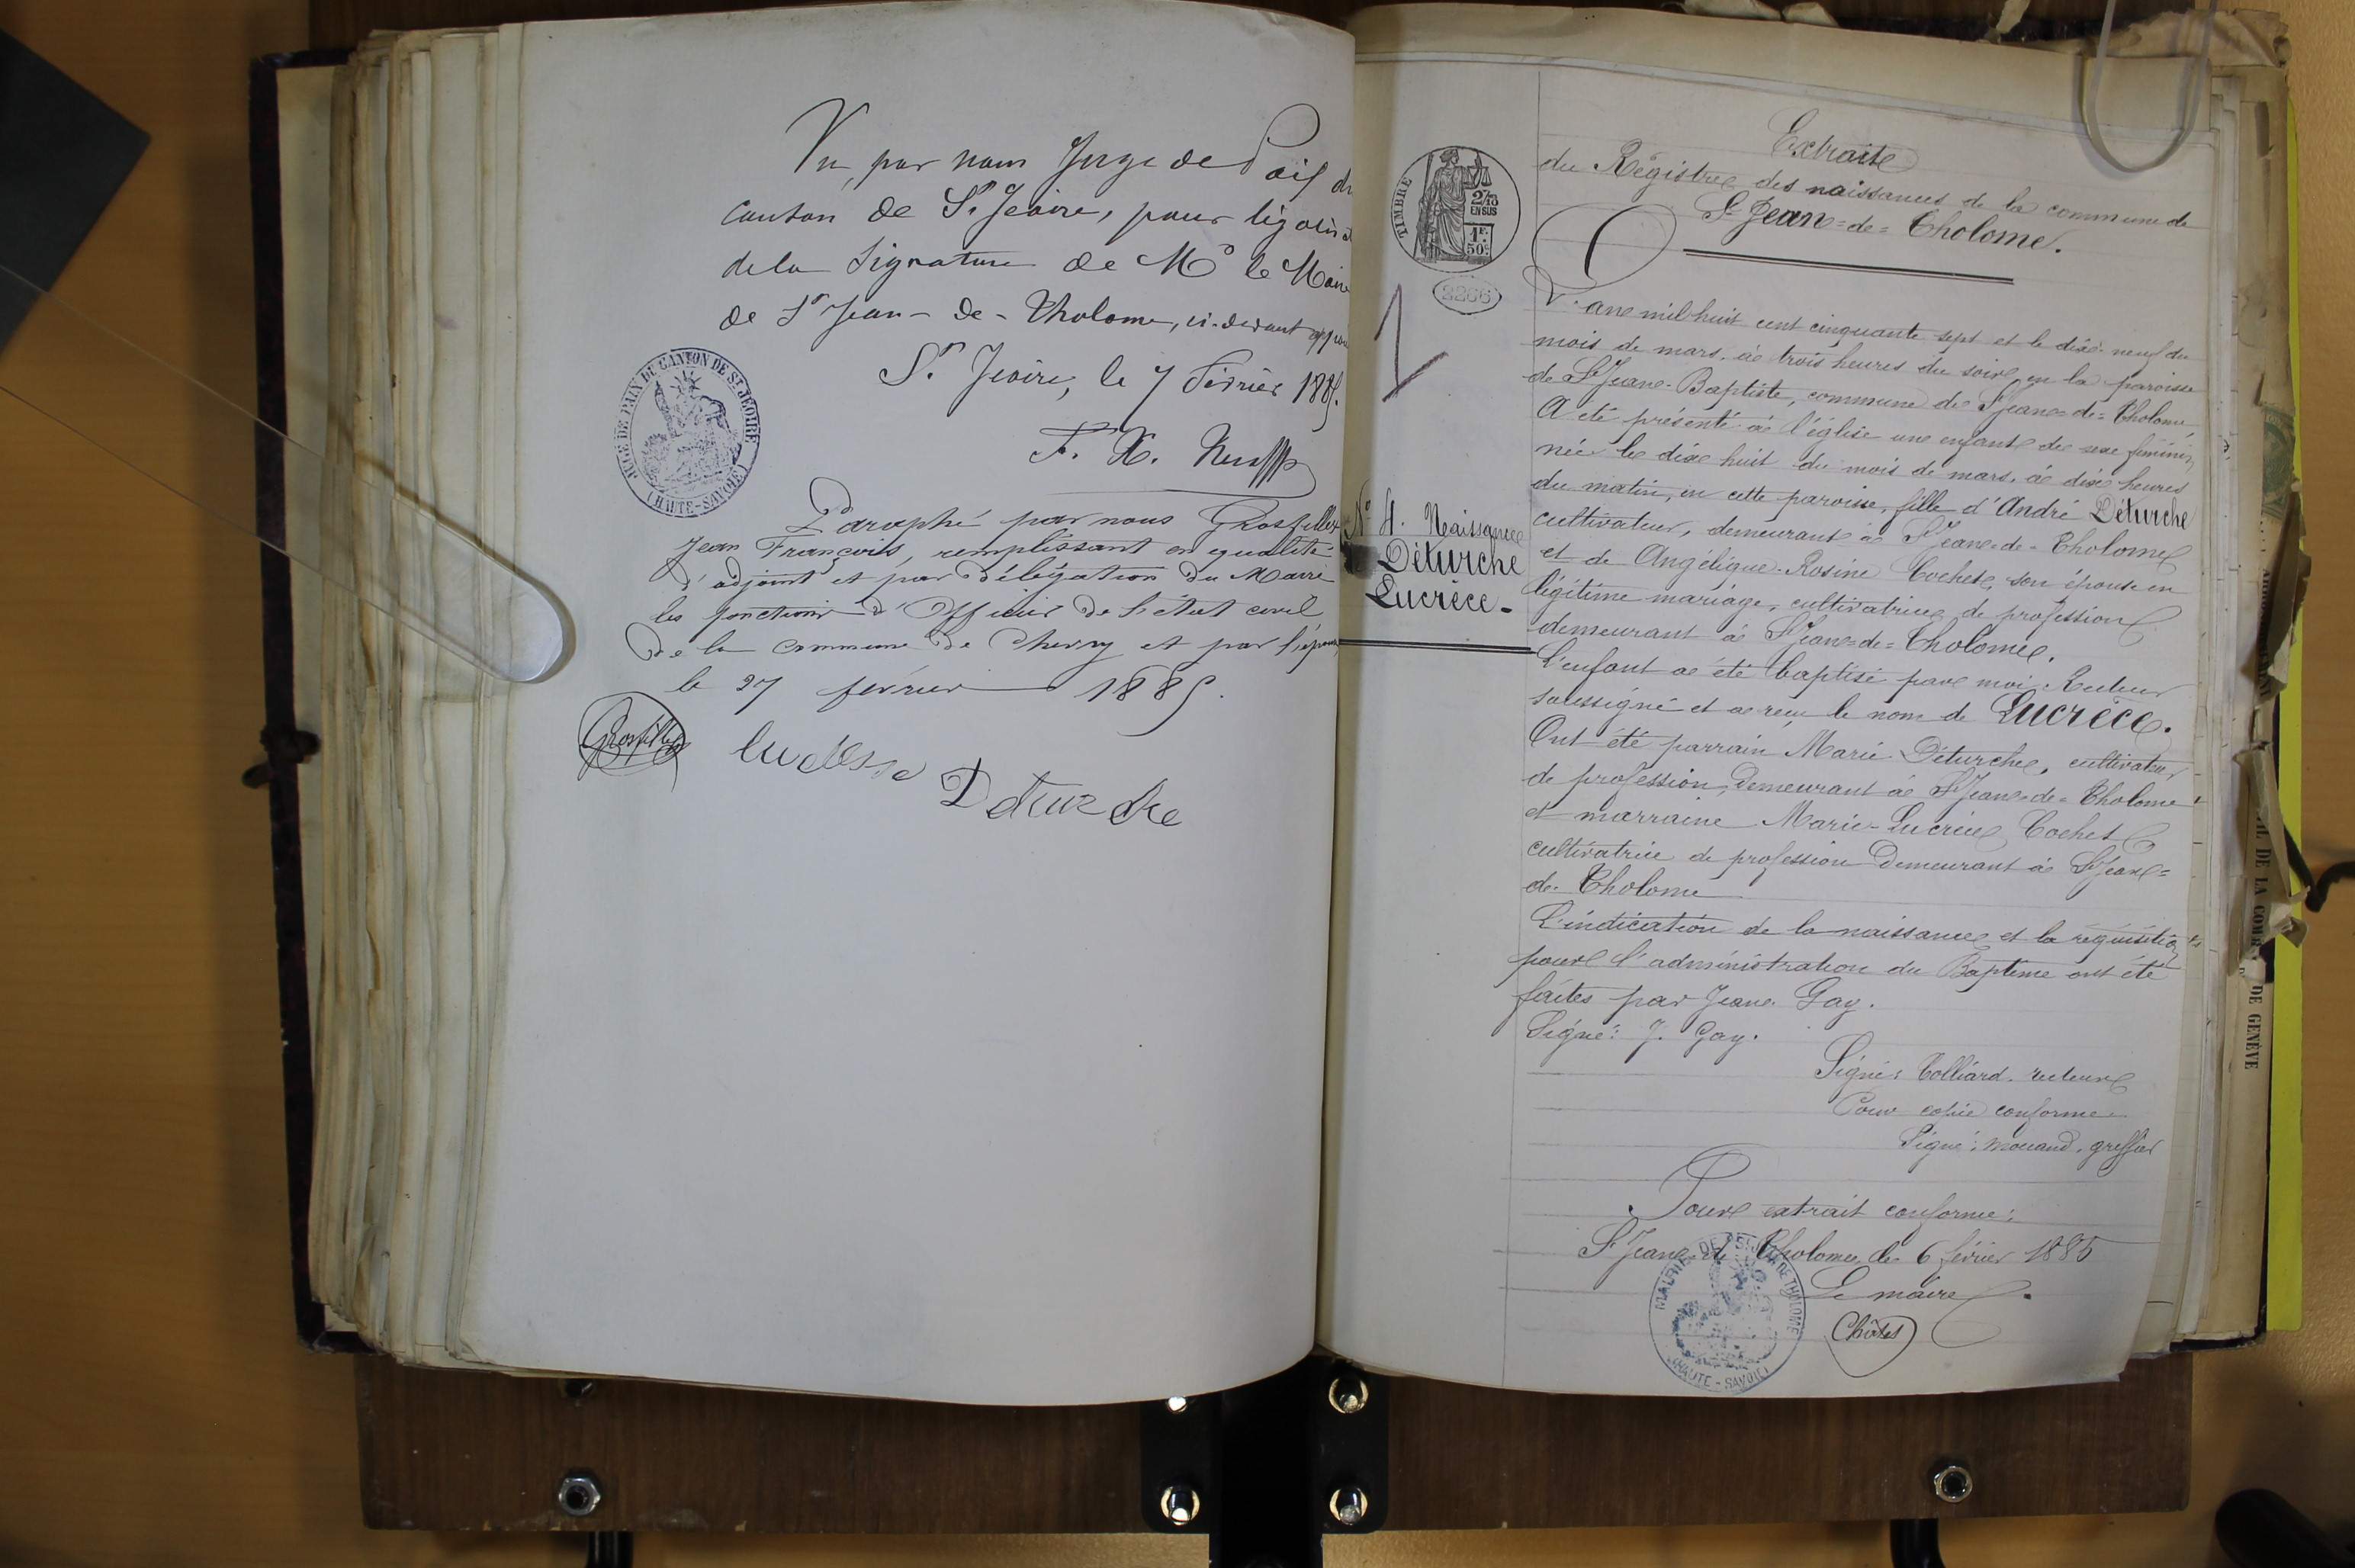 Vu, par nous Juge de Paix du
canton de St Jeoire, pour légalisat
de la signature de Mr le Maire
de St Jean-de-Tholome, ci-devant appo
St Jeoire, le 7 Février 1885.
JUGE DE PAIX DU CANTON DE ST JEOIRE
(HAUTE-SAVOIE)
Paraphé par nous Grosfillex
Jean François, remplissant en qualité
d'adjoint et par délégation du Maire
les fonctions d'Officier de l'état civil
de la commune de Chevry et par l'épouse
le 27 février 1885.
Grosfillex
Deturche
Extrait
du Régistre des naissances de la commune de
St Jean=de=Tholome.
TIMBRE
2/10
EN SUS
1F.
50c
2266
1
L'an mil huit cent cinquante sept et le dix-neuf du
mois de mars, à trois heures du soir, en la paroisse
de St Jean-Baptiste, commune de St Jean=de=Tholome
A été présenté à l'église un enfant de sexe féminin
née le dix huit du mois de mars, à dix heures
du matin, en cette paroisse, fille d'André Déturche
cultivateur, demeurant à St Jean=de=Tholome
et de Angélique-Rosine Cochet, son épouse en
légitime mariage, cultivatrice de profession
demeurant à St Jean=de=Tholome.
No 4. Naissance
Déturche
Lucrèce-
L'enfant a été baptisé par moi Recteur
soussigné et a reçu le nom de Lucrèce.
Ont été parrain Marie Déturche, cultivateur
de profession, demeurant à St Jean=de=Tholome
et marraine Marie-Lucrèce Cochet
cultivatrice de profession demeurant à St Jean=
de Tholome
L'indication de la naissance et la réquisition
pour l'administration du Baptême ont été
faites par Jean Gay.
Signé: J. Gay.
Signé: Colliard. recteur
Pour copie conforme
Signé: Mouand, greffier
Pour extrait conforme:
St Jean de Tholome, le 6 février 1885
Le maire
MAIRIE DE ST JEAN DE THOLOME
(HAUTE-SAVOIE)
DE LA COM
DE GENÈVE